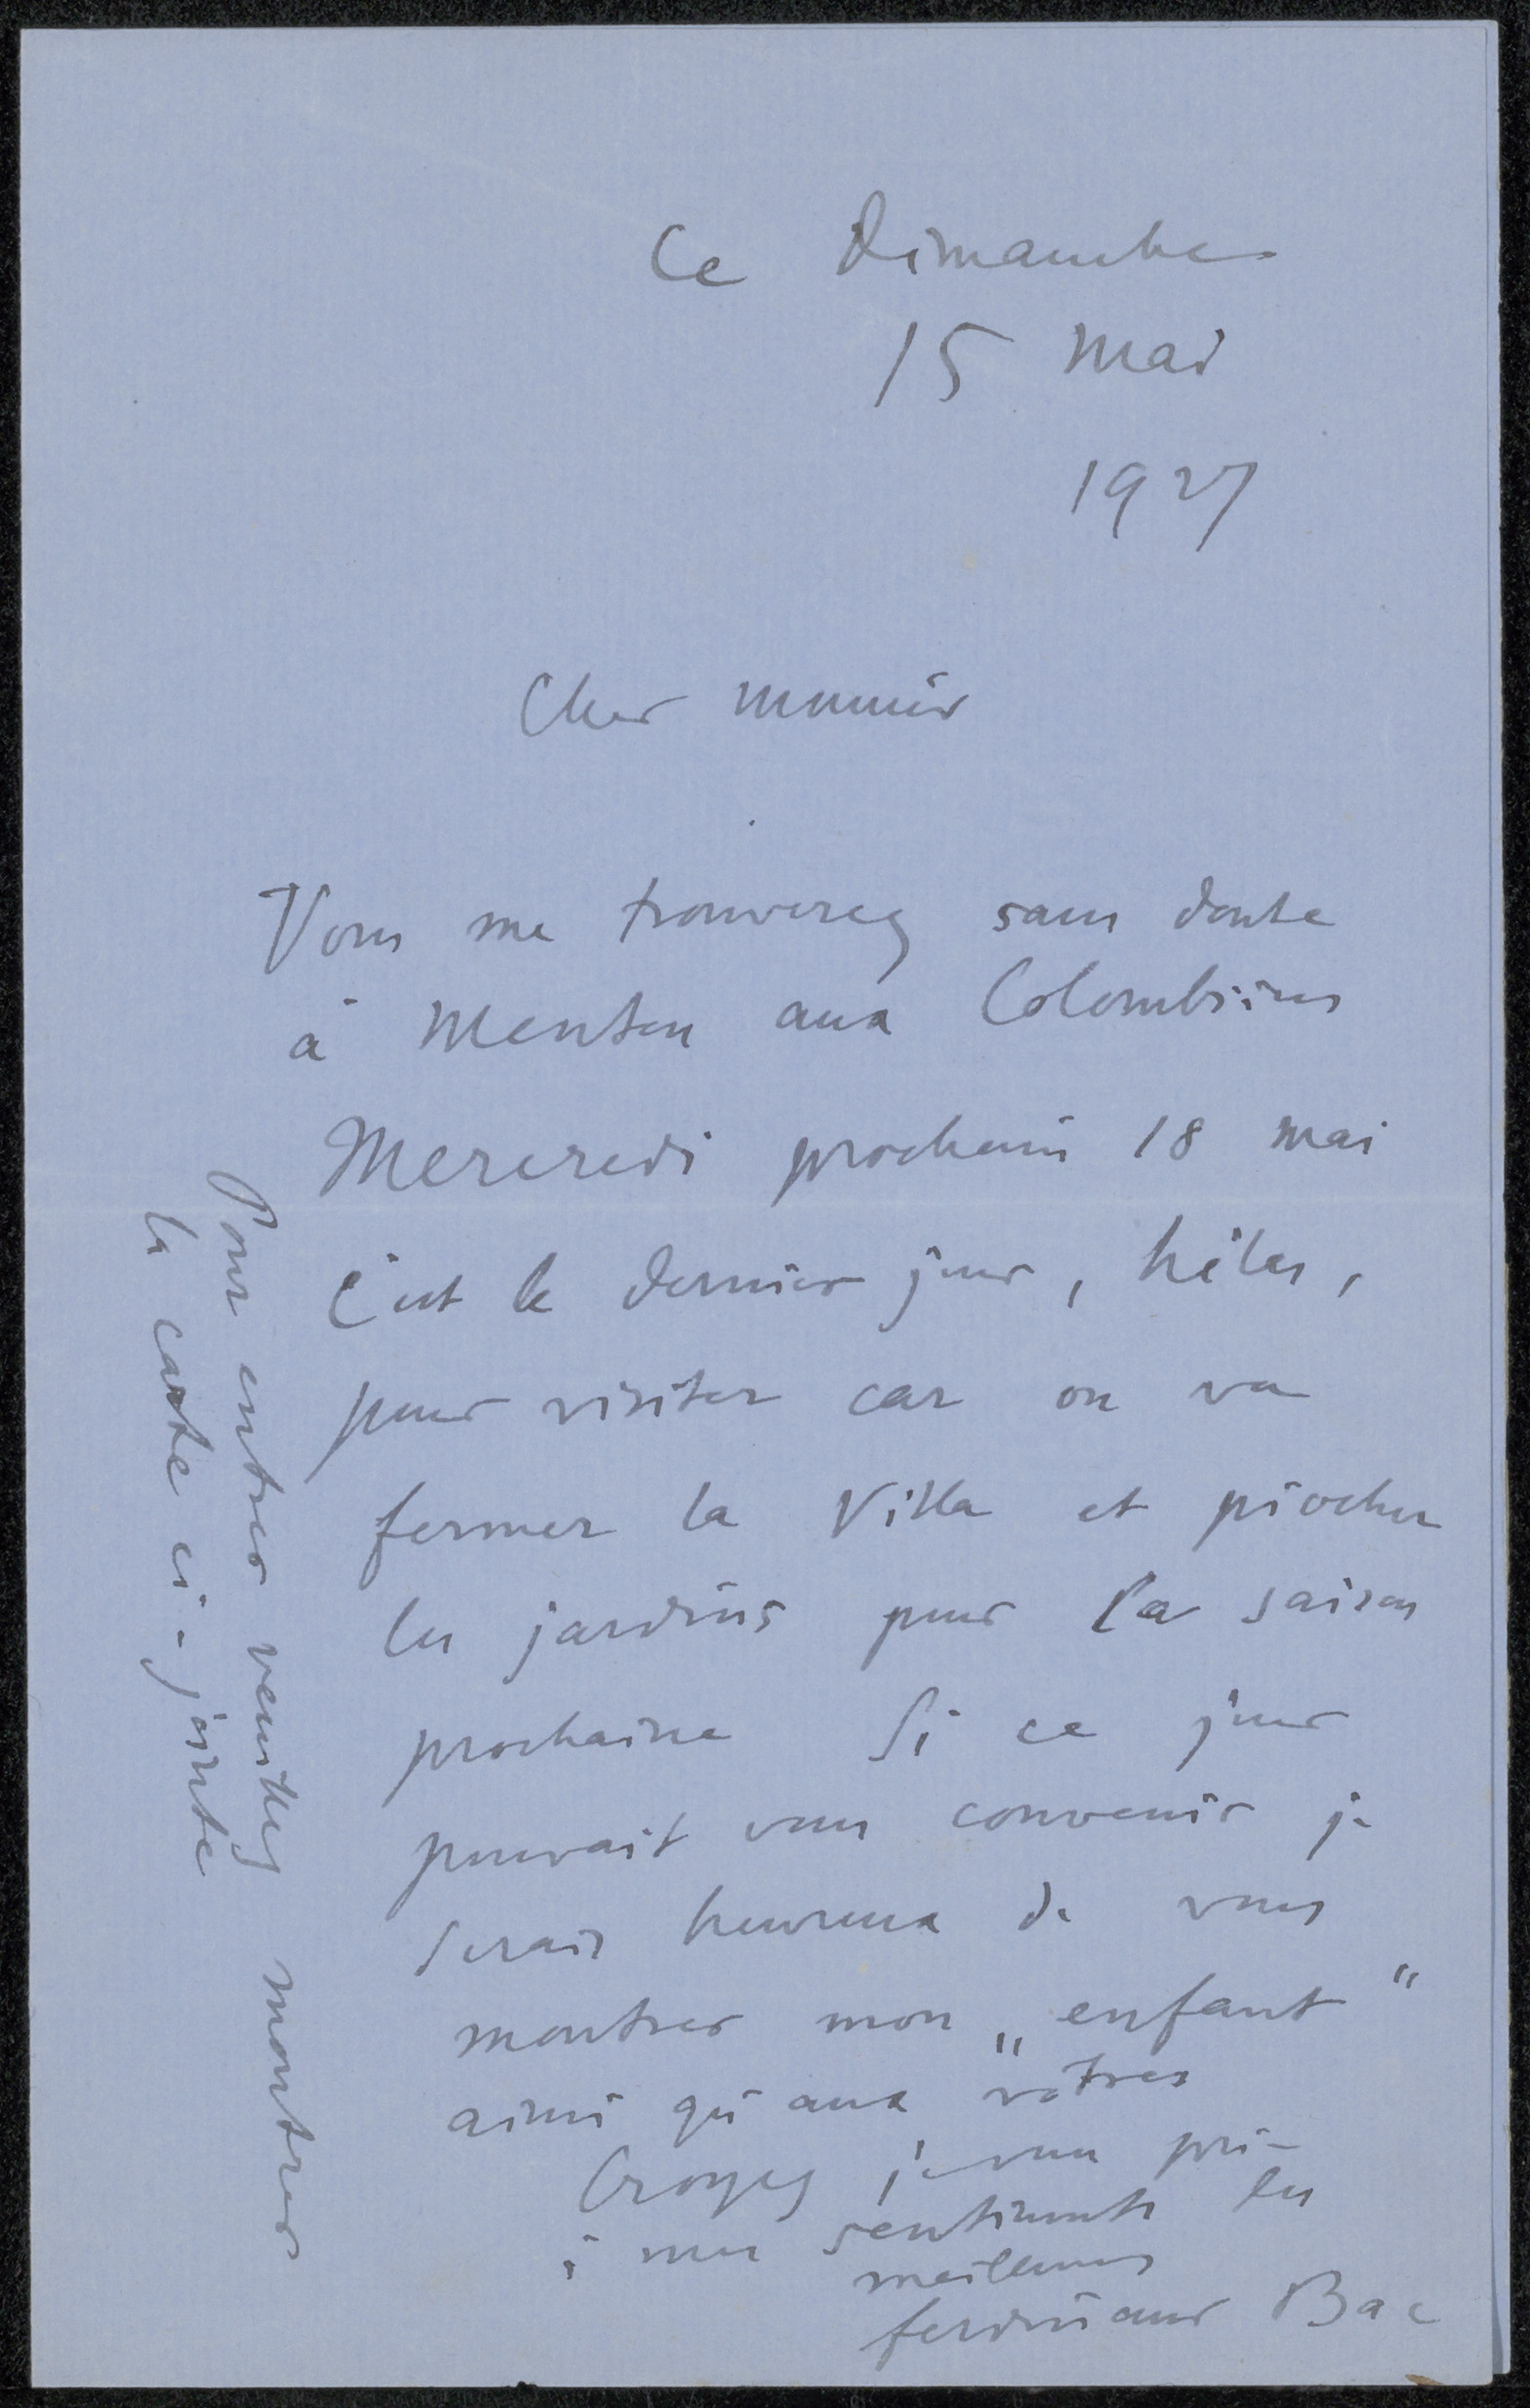 Ce Dimanche
15 Mai
1927
Cher monsieur
Vous me trouverez sans doute
à Menton aux Colombières
Mercredi prochain 18 mai
C'est le dernier jour, hélas,
pour visiter car on va
fermer la Villa et piocher
les jardins pour la saison
prochaine Si ce jour
pouvait vous convenir je
serais heureux de vous
montrer mon „enfant"
ainsi qu'aux vôtres
Croyez je vous prie
à mes sentiments les
meilleurs
ferdinand Bac
Pour entrer veuillez montrer
la carte ci-jointe